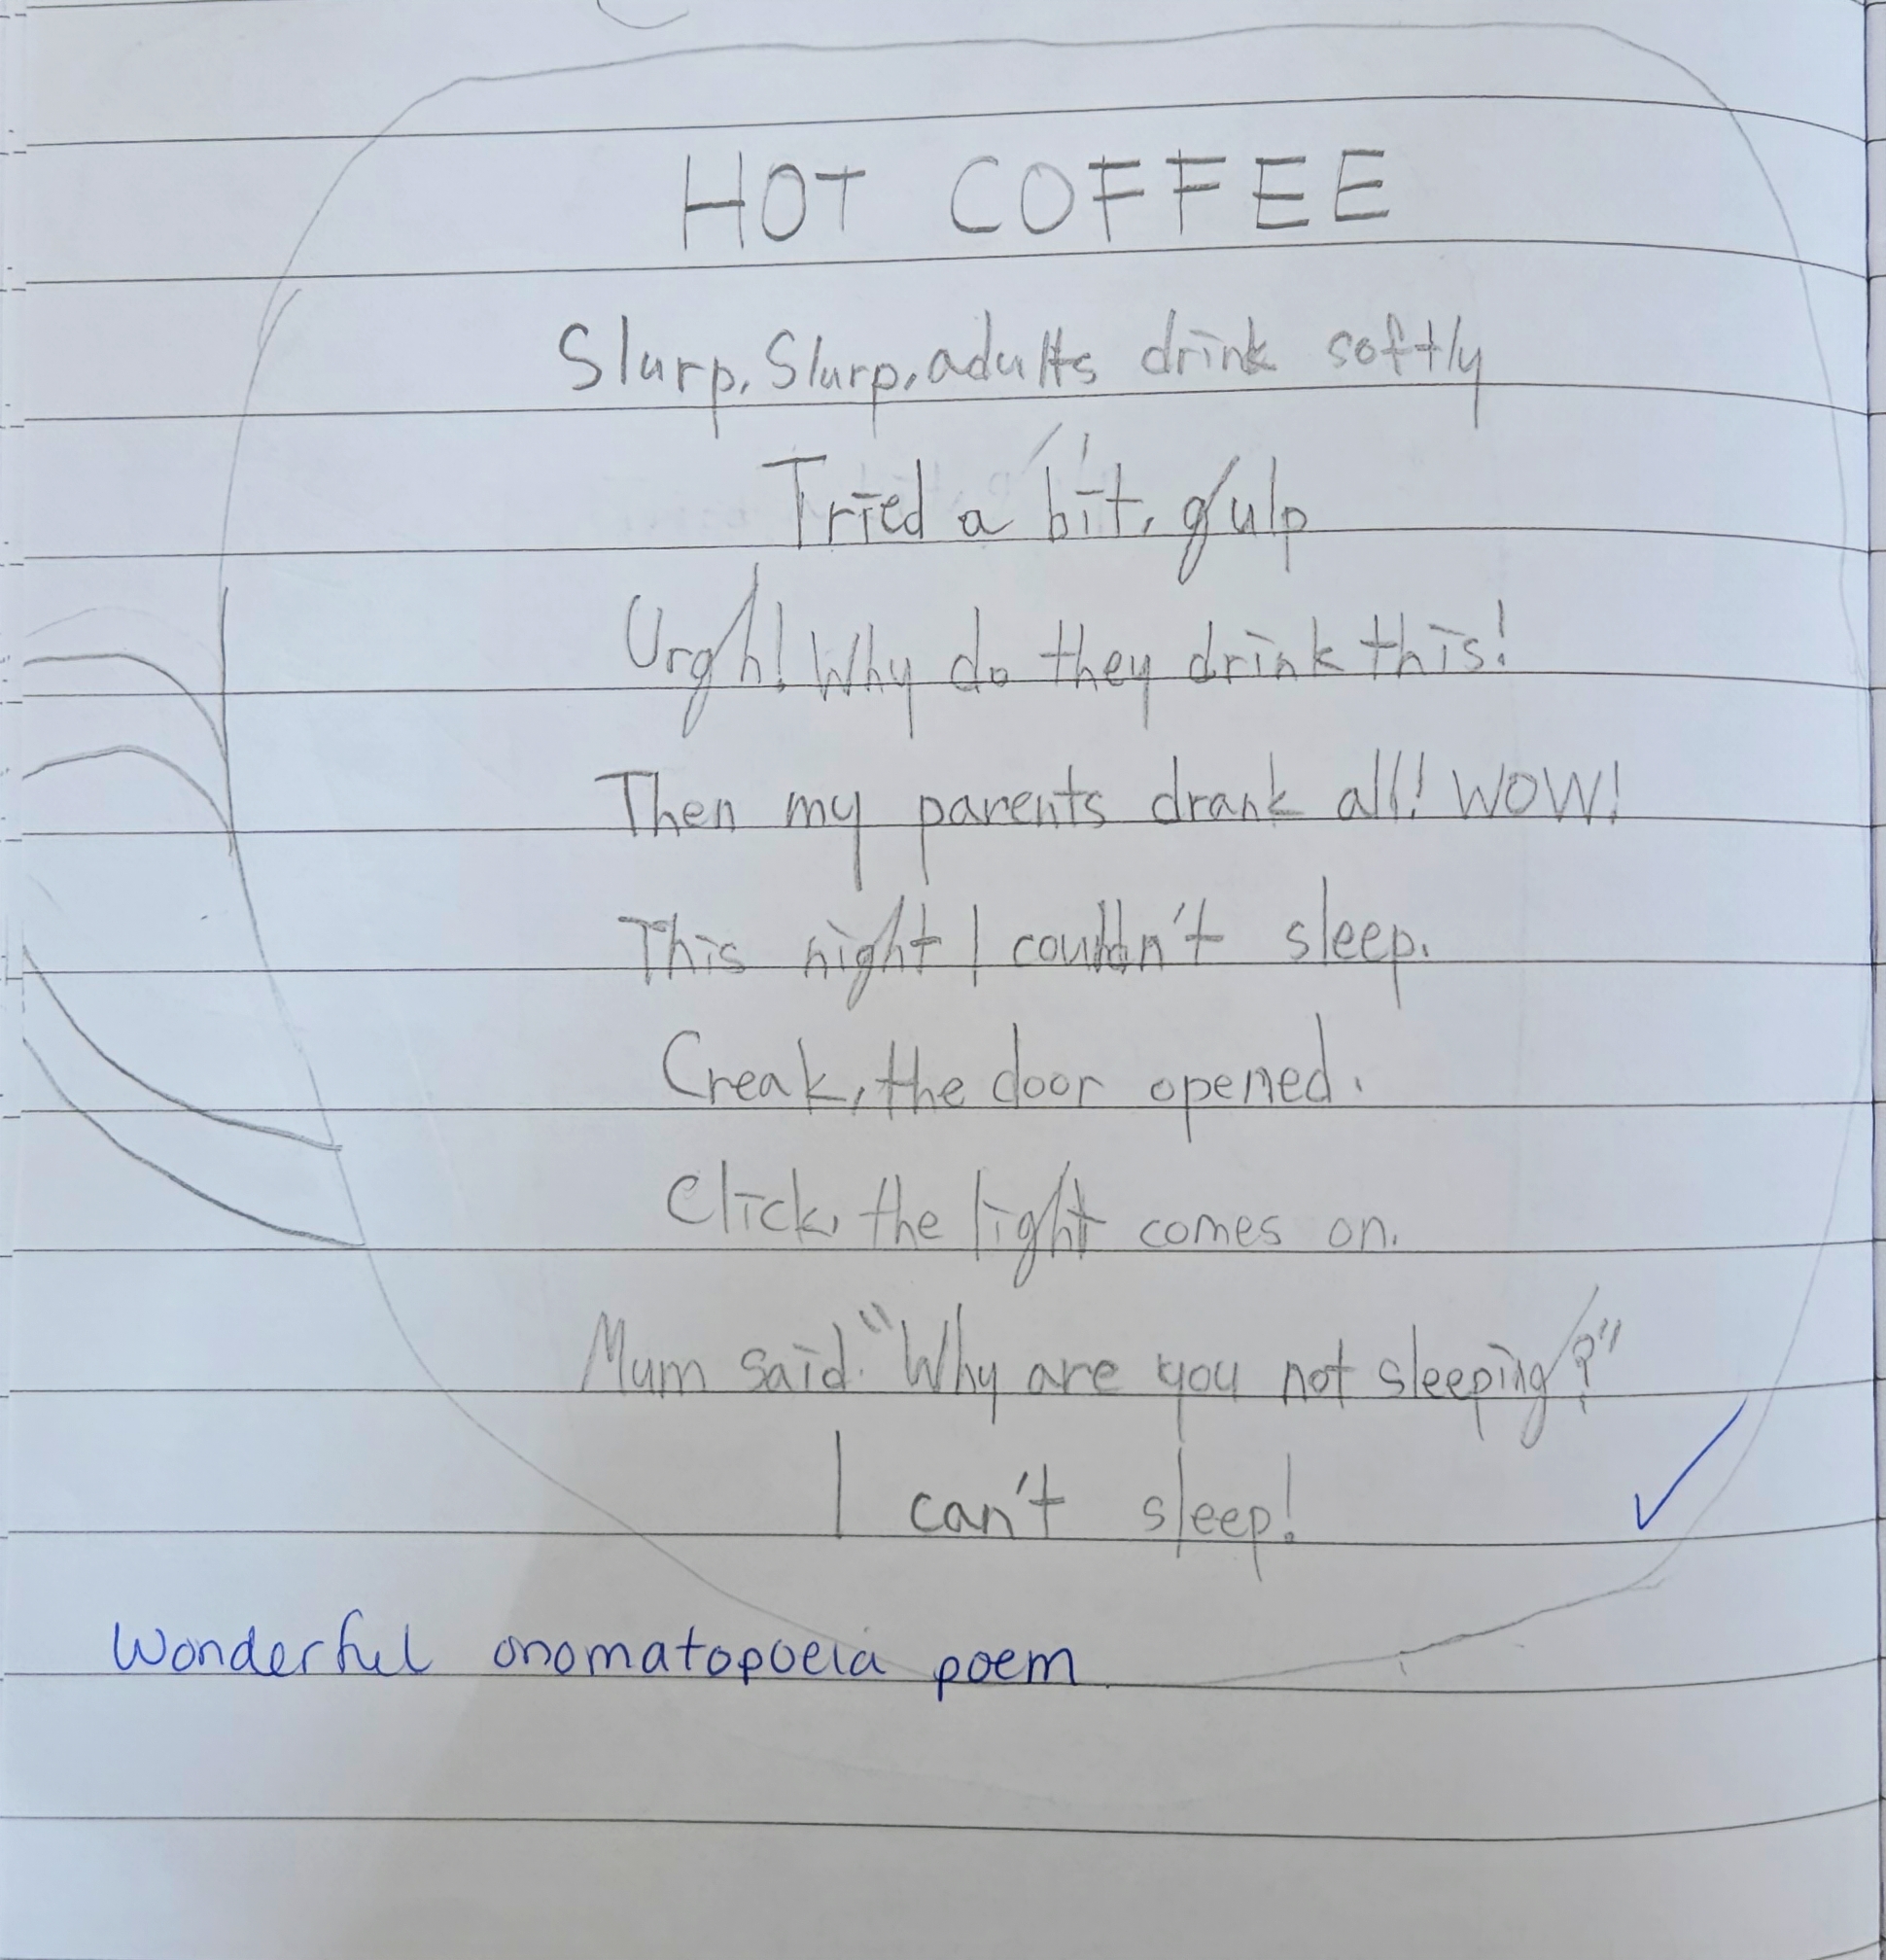 HOT COFFEE
Slurp, Slurp, adults drink softly
Tried a bit, gulp
Urgh! Why do they drink this!
Then my parents drank all! WOW!
This night I couldn't sleep.
Creak, the door opened.
Click, the light comes on.
Mum said. "Why are you not sleeping?"
I can't sleep!
Wonderful onomatopoeia poem